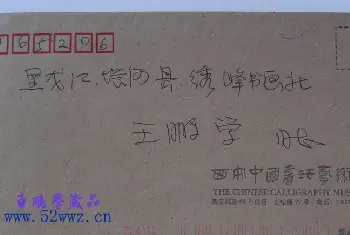 165206
黑龙江.塔河县.绣峰书画社
王鹏学 收
西安中国书法艺術
THE CHINESE CALLIGRAPHY MUS
王鹏学藏品
www.52wwz.cn